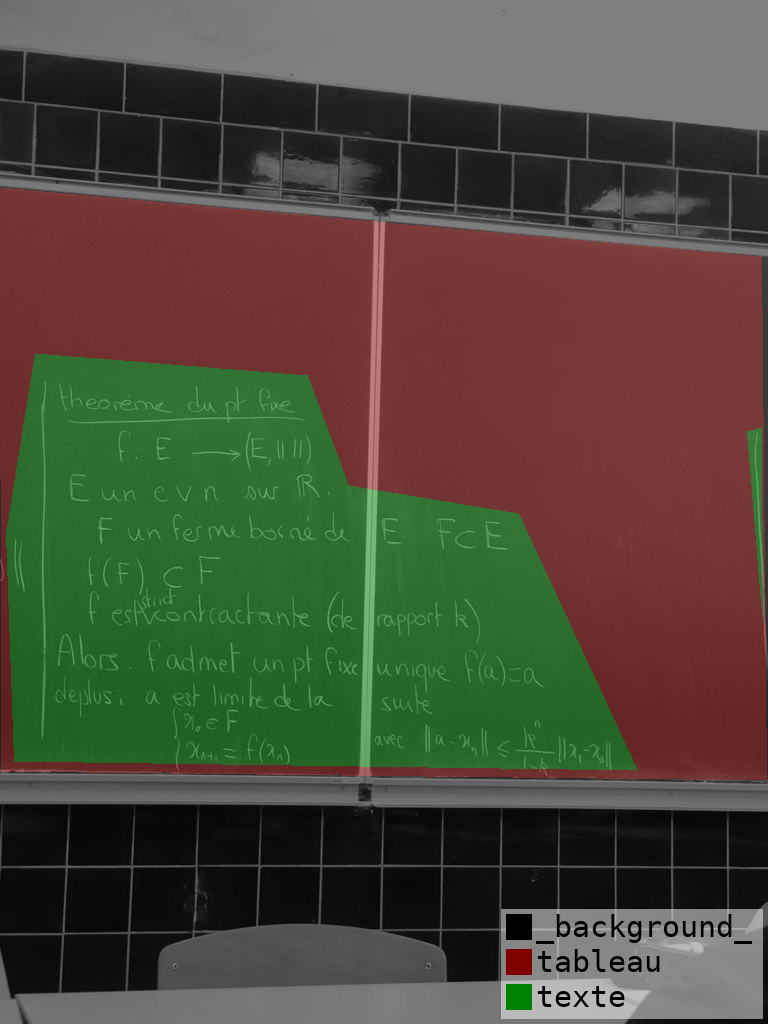 theorème du pt fixe.
f. E → (E, || ||)
E un e v n sur ℝ.
F un fermé borné de E F⊂E
f(F) ⊂ F
f est strict contractante (de rapport k)
||
Alors. f admet un pt fixe unique f(a)=a
deplus; a est limite de la suite
{ x₀ ∈ F
{ xₙ₊₁ = f(xₙ) avec ||a-xₙ|| ≤ kⁿ/(1-k) ||x₁-x₀||
_background_
tableau
texte